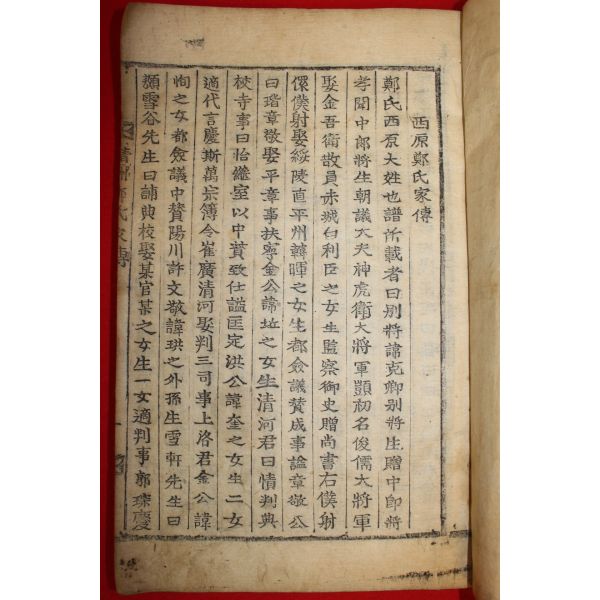 西原鄭氏家傳
鄭氏西原大姓也譜所載者曰別將諱克卿別將生贈中郎將
孝聞中郎將生朝議大夫神虎衛大將軍顗初名俊儒大將軍
娶金吾衛散員赤城白利臣之女生監察御史贈尚書右僕射
僕射娶綏陵直平州韓暉之女生都僉議贊成事謚章敬公
曰瑎章敬娶平章事扶寧金公諱坵之女生清河君曰情判典
校寺事曰怡繼室以中贊致仕謚匡定洪公諱奎之女生二女
適代言慶斯萬宗簿令崔廣清河娶判三司事上洛君金公諱
恂之女都僉議中贊陽川許文敬諱珙之外孫生雪軒先生曰
頫雪谷先生曰誧典校娶某官某之女生一女適判事郭珠慶
鄭氏家傳